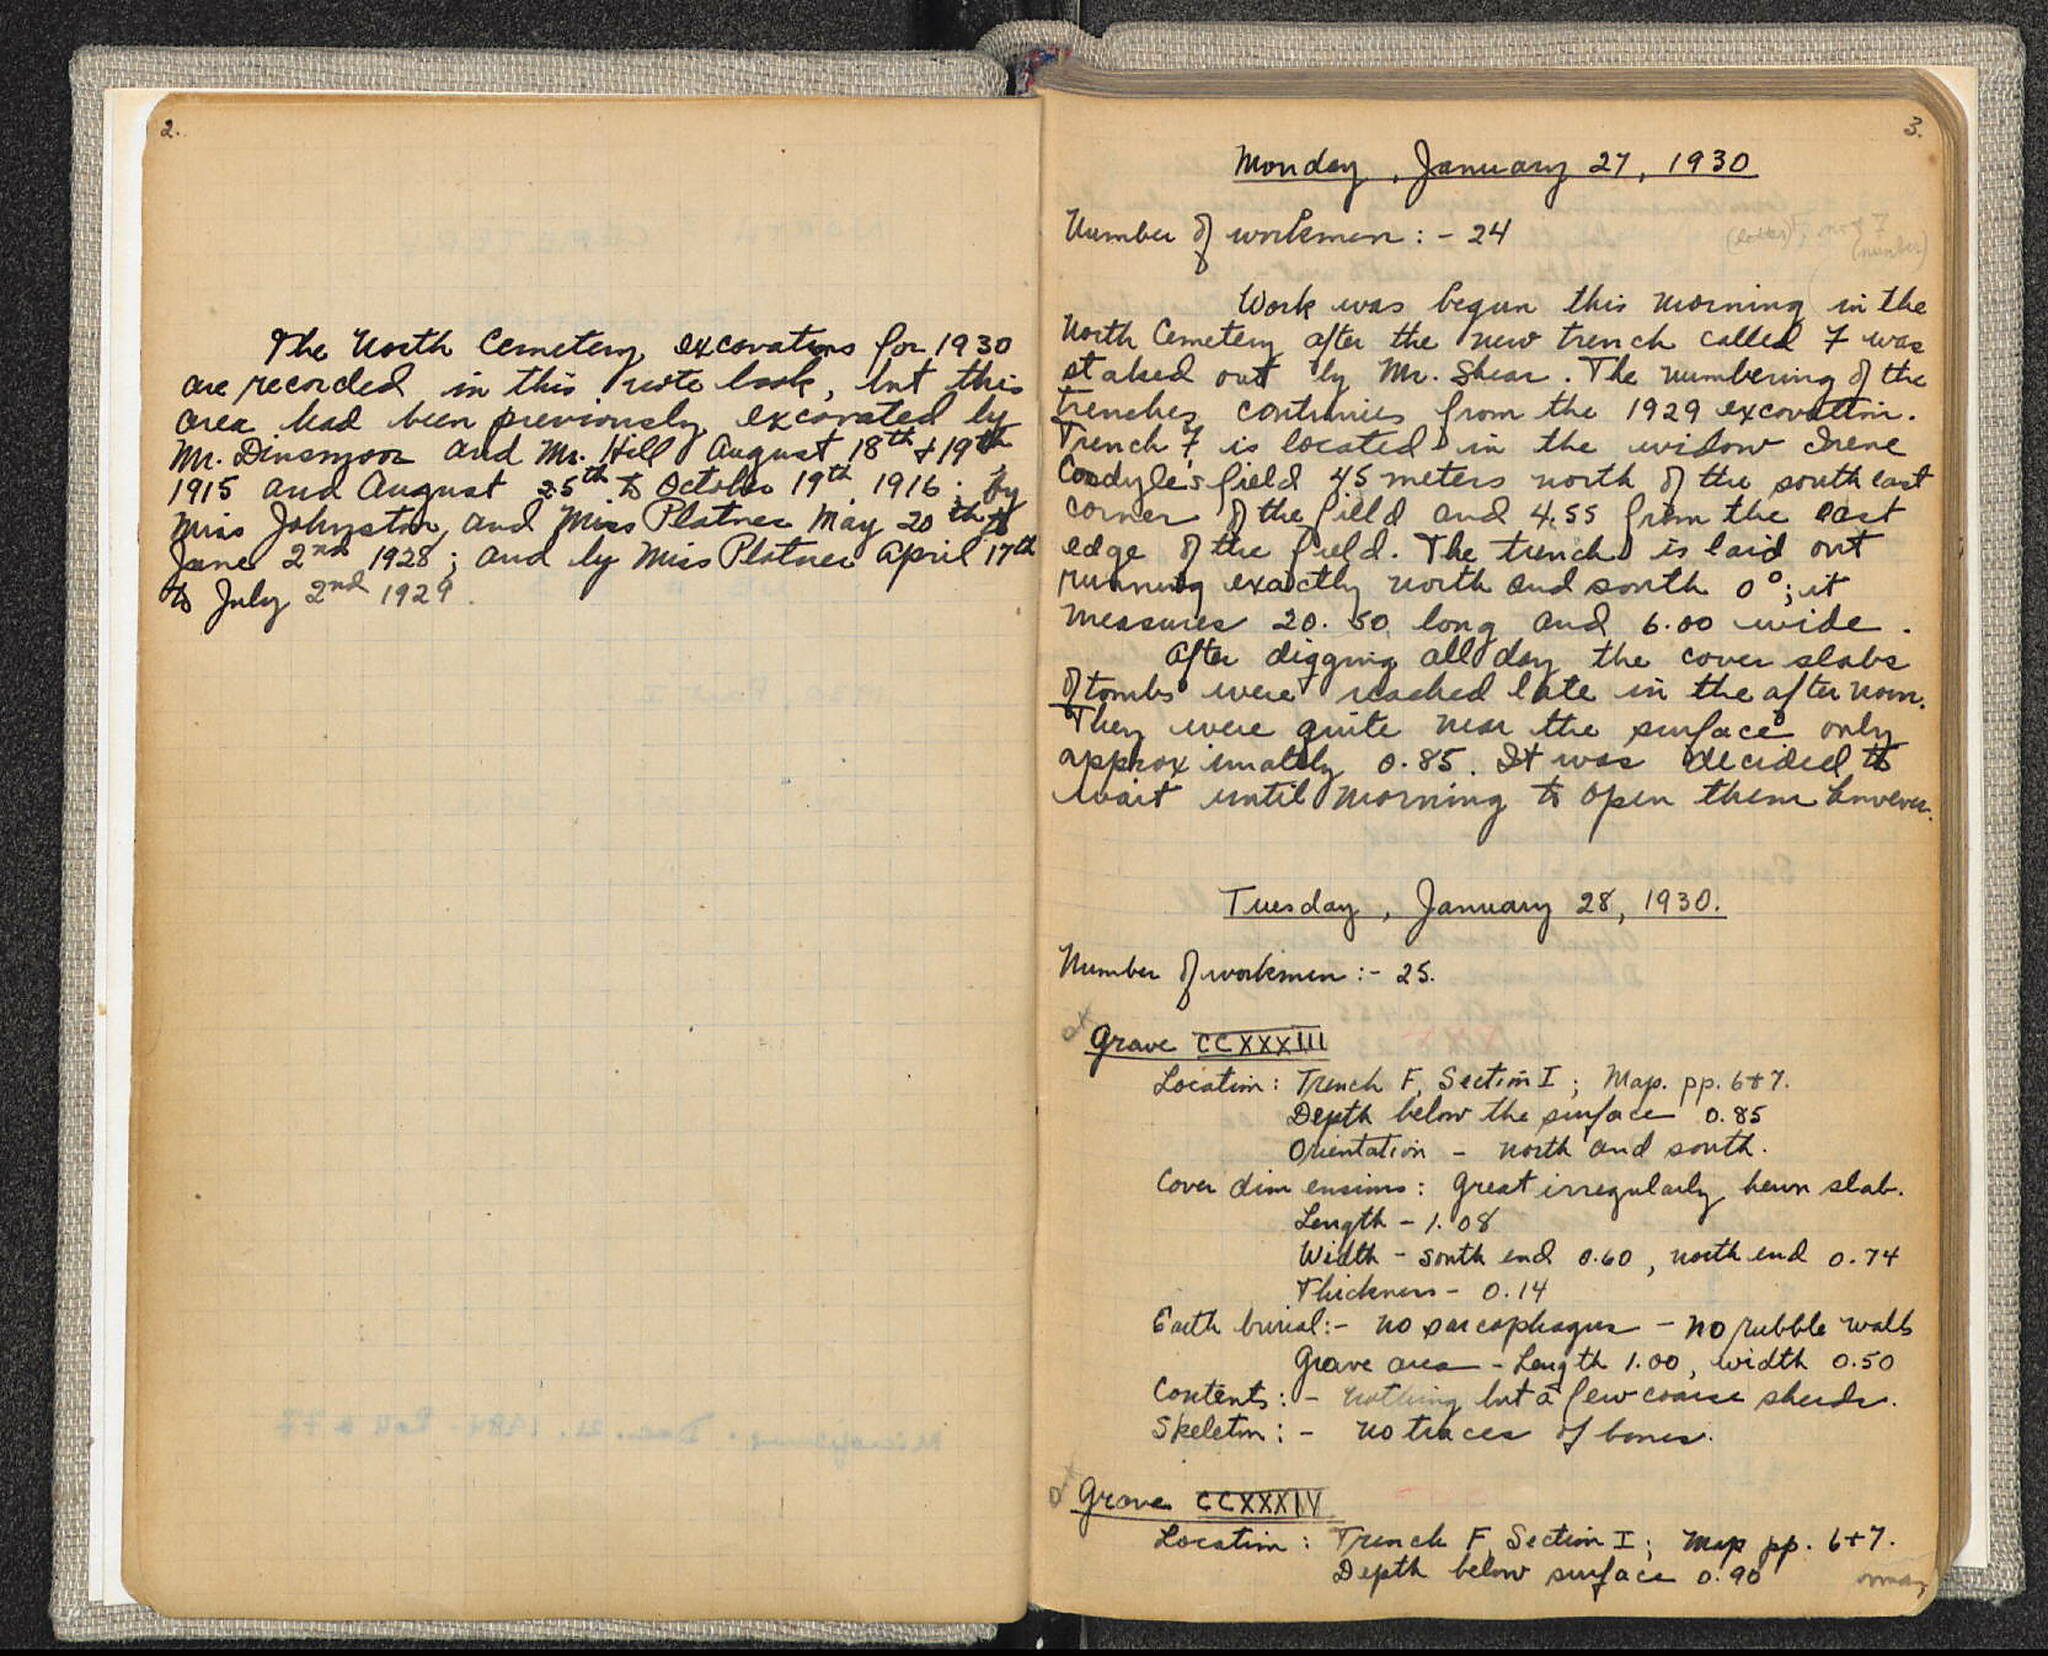 2.
The North Cemetery excavations for 1930
are recorded in this note book, but this
area had been previously excavated by
Mr. Dinsmoor and Mr. Hill August 18th + 19th
1915 and August 25th to October 19th 1916; by
Miss Johnston, and Miss Platner May 20th to
June 2nd 1928; and by Miss Platner April 17th
to July 2nd 1929.
3.
Monday, January 27, 1930
Number of workmen :- 24
(letter) F, not 7
(number)
Work was begun this morning in the
North Cemetery after the new trench called F was
staked out by Mr. Shear. The numbering of the
trenches continues from the 1929 excavation.
Trench F is located in the widow Irene
field 45 meters north of the south east
corner of the field and 4.55 from the east
edge of the field. The trench is laid out
running exactly north and south 0°; it
measures 20.50 long and 6.00 wide.
After digging all day the cover slabs
of tombs were reached late in the after noon.
They were quite near the surface only
approximately 0.85. It was decided to
wait until morning to open them however.
Tuesday, January 28, 1930.
Number of workmen :- 25.
Grave CCXXXIII
Location: Trench F, Section I; Map. pp. 6+7.
Depth below the surface 0.85
Orientation - north and south.
Cover dimensions: Great irregularly hewn slab.
Length - 1.08
Width - south end 0.60, north end 0.74
Thickness - 0.14
Earth burial:- no sarcophagus - no rubble walls
Grave area - Length 1.00, width 0.50
Contents:- nothing but a few coarse sherds.
Skeleton:- no traces of bones.
Grave CCXXXIV
Location: Trench F, Section I; Map pp. 6+7.
Depth below surface 0.90